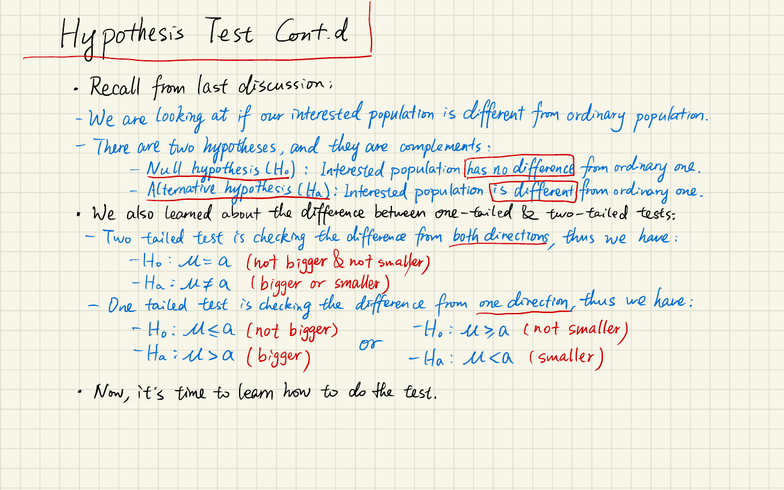 Hypothesis Test Cont.d
· Recall from last discussion:
- We are looking at if our interested population is different from ordinary population.
- There are two hypotheses, and they are complements:
- Null hypothesis (H₀) : Interested population has no difference from ordinary one.
- Alternative hypothesis (Ha) : Interested population is different from ordinary one.
· We also learned about the difference between one-tailed & two-tailed tests:
- Two tailed test is checking the difference from both directions, thus we have:
- H₀ : μ = a (not bigger & not smaller)
- Ha : μ ≠ a (bigger or smaller)
- One tailed test is checking the difference from one direction, thus we have:
- H₀ : μ ≤ a (not bigger) or - H₀ : μ ≥ a (not smaller)
- Ha : μ > a (bigger) - Ha : μ < a (smaller)
· Now, it's time to learn how to do the test.